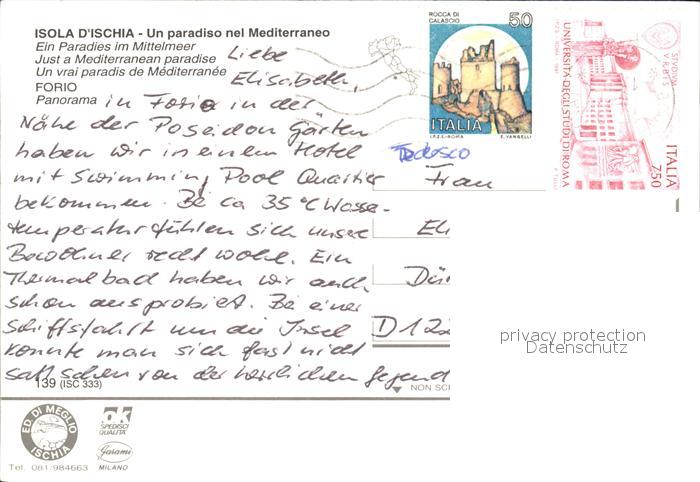 ISOLA D'ISCHIA - Un paradiso nel Mediterraneo
Ein Paradies im Mittelmeer
Just a Mediterranean paradise
Un vrai paradis de Méditerranée
FORIO
Panorama
Liebe
Elisabeth,
in Forio in der
Nähe der Poseidon Gärten
haben wir in einem Hotel
mit Swimming Pool Quartier
bekommen. Bei ca 35 °C Wasser-
temperatur fühlen sich unsere
recht wohl. Ein
Thermalbad haben wir auch
schon ausprobiert. Bei einer
Schiffsfahrt um die Insel
konnte man sich fast nicht
satt sehen von der herrlichen Gegend
139 (ISC 333)
ED. DI MEGLIO
ISCHIA
Tel. 081/984663
ok
SPEDISCI
QUALITÀ
Garami
MILANO
ROCCA DI
CALASCIO
50
ITALIA
I.P.Z.S.-ROMA
E. VANGELLI
UNIVERSITÀ DEGLI STUDI DI ROMA
ITALIA
750
STVDIVM
VRBIS
Tedesco
Frau
Eli
Dür
D 122
NON SC
privacy protection
Datenschutz